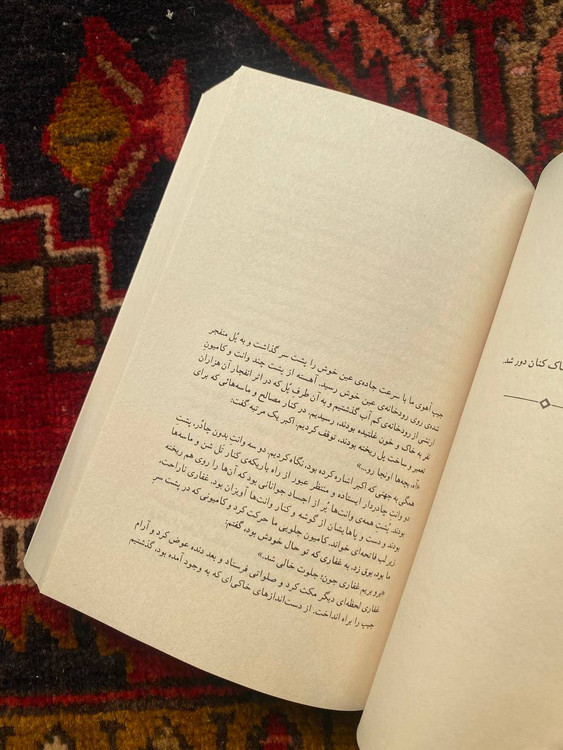 جیپ آهوی ما با سرعت جاده‌ی عین خوش را پشت سر گذاشت و به پُل منفجر
شده‌ی روی رودخانه‌ی عین خوش رسید. آهسته از پشت چند وانت و کامیون
ارتشی از رودخانه‌ی کم آب گذشتیم و به آن طرف پُل که در اثر انفجار آن هزاران
نفر به خاک و خون غلتیده بودند، رسیدیم. در کنار مصالح و ماسه‌هائی که برای
تعمیر و ساخت پل ریخته بودند، توقف کردیم. اکبر یک مرتبه گفت:
«آه، بچه‌ها اونجا رو...»
همگی به جهتی که اکبر اشاره کرده بود، نگاه کردیم. دو سه وانت بدون چادر، پشت
دو وانت چادردار ایستاده و منتظر عبور از راه باریکه‌ی کنار تل شن و ماسه‌ها
بودند. پُشت همه‌ی وانت‌ها پُر از اجساد جوانانی بود که آن‌ها را روی هم ریخته
بودند و دست و پاهایشان از گوشه و کنار وانت‌ها آویزان بود. غفاری ناراحت،
زیر لب فاتحه‌ای خواند. کامیون جلویی ما حرکت کرد و کامیونی که در پشت سر
ما بود، بوق زد. به غفاری که تو حال خودش بود، گفتم:
«برو بریم غفاری جون، جلوت خالی شد.»
غفاری لحظه‌ای دیگر مکث کرد و صلواتی فرستاد و بعد دنده عوض کرد و آرام
جیپ را براه انداخت. از دست‌اندازهای خاکی‌ای که به وجود آمده بود، گذشتیم
خاک کنان دور شد.